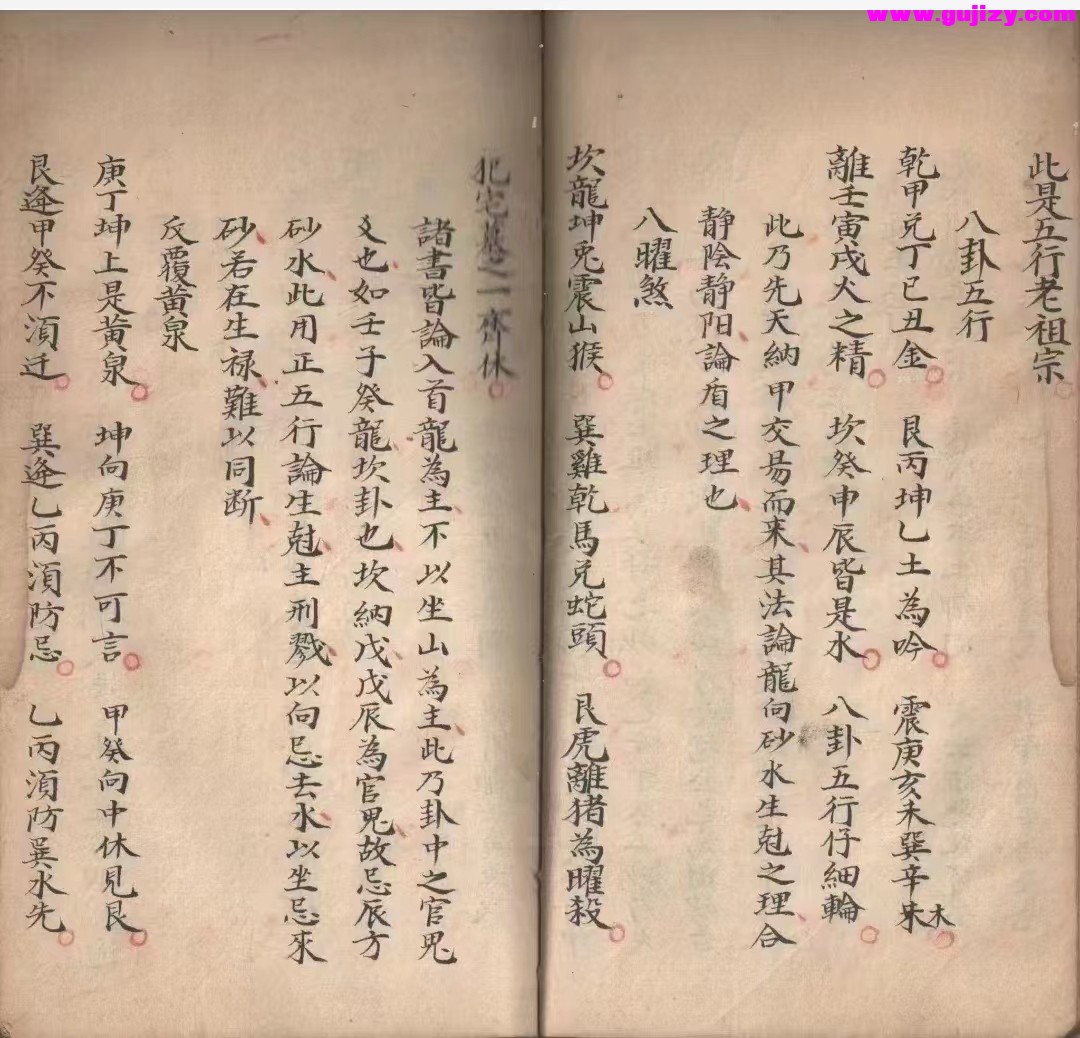 www.gujizy.com
此是五行老祖宗
八卦五行
乾甲兑丁巳丑金 艮丙坤乙土為吟 震庚亥未巽辛木
離壬寅戌火之精 坎癸申辰皆是水 八卦五行仔細輪
此乃先天納甲交易而来其法論龍向砂水生尅之理合
静陰静阳論盾之理也
八曜煞
坎龍坤兎震山猴 巽雞乾馬兑蛇頭 艮虎離猪為曜殺
犯宅墓之一齊休
諸書皆論入首龍為主不以坐山為主此乃卦中之官鬼
爻也如壬子癸龍坎卦也坎納戊戊辰為官鬼故忌辰方
砂水此用正五行論生尅主刑戮以向忌去水以坐忌來
砂若在生禄難以同断
反覆黄泉
庚丁坤上是黄泉 坤向庚丁不可言 甲癸向中休見艮
艮逢甲癸不湏迁 巽逢乙丙湏防忌 乙丙湏防巽水先